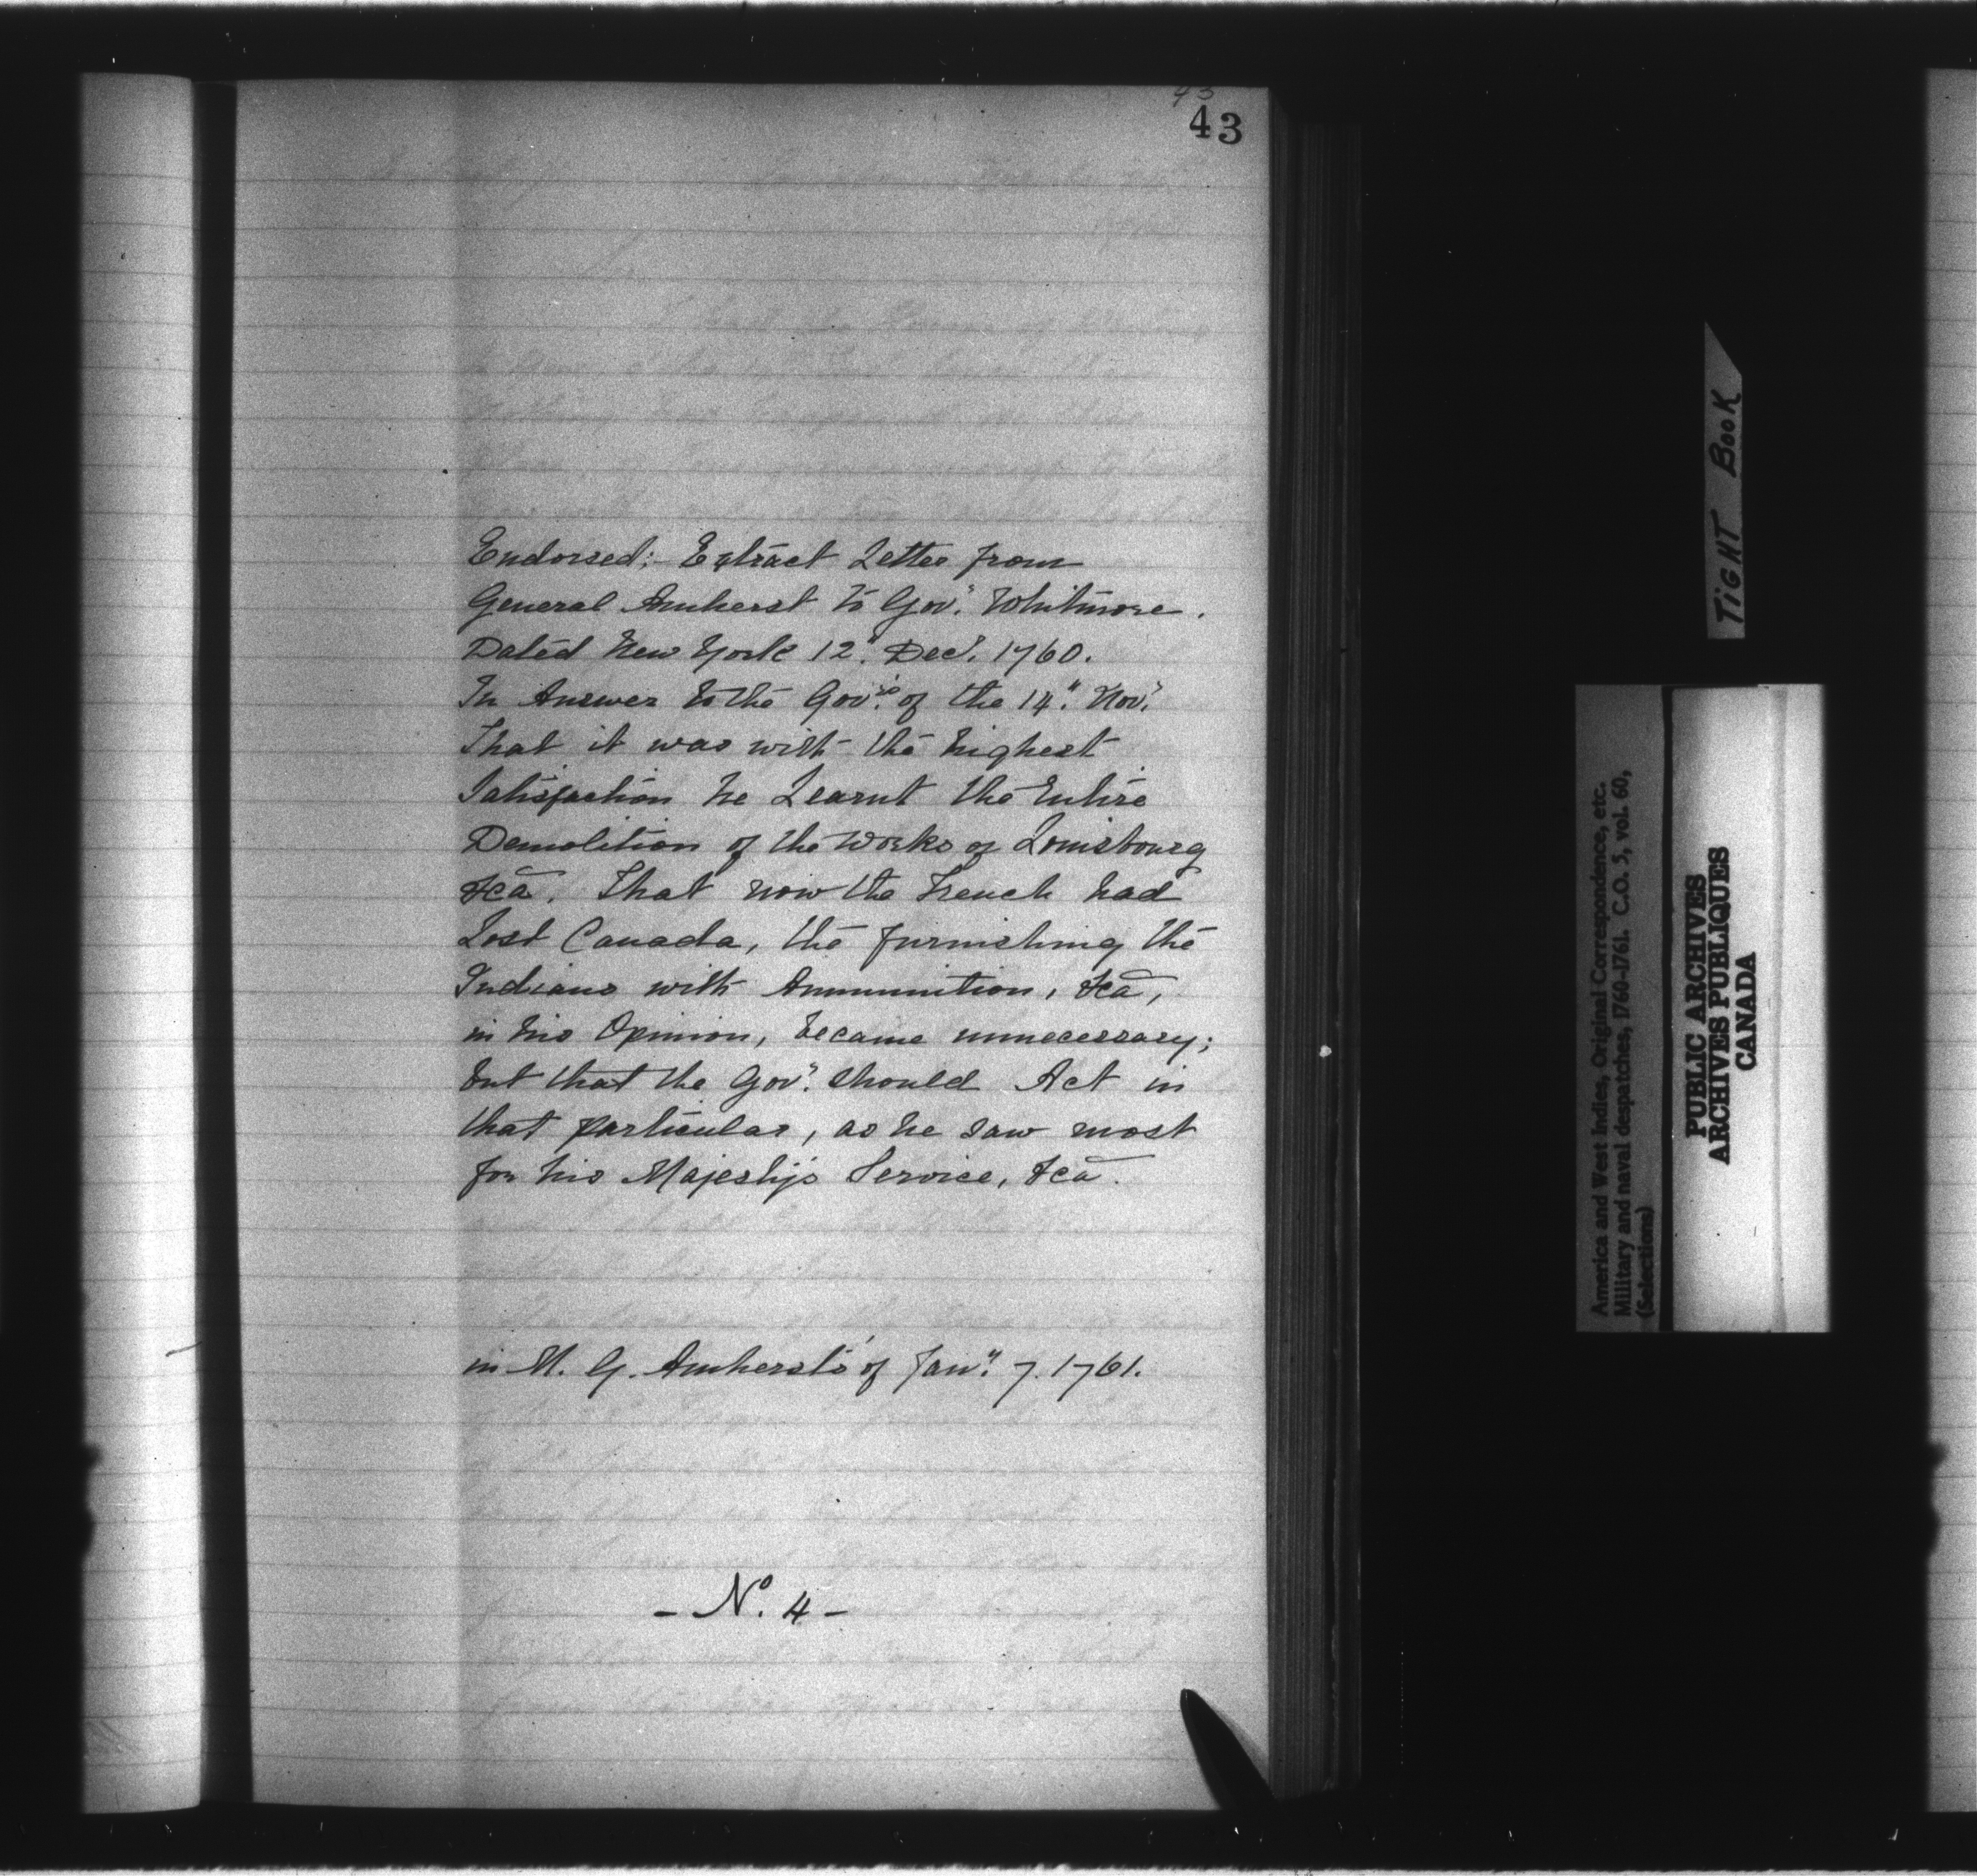 43
43
Endorsed;- Extract Letter from
General Amherst to Gov.r Whitmore.
Dated New York 12.th Dec.r 1760.
In Answer to the Gov.rs of the 14.th Nov.r
That it was with the highest
Satisfaction he Learnt the Entire
Demolition of the Works of Louisbourg
&ca. That now the French had
Lost Canada, the furnishing the
Indians with Ammunition, &ca,
in his Opinion, became unnecessary;
but that the Gov.r should Act in
that particular, as he saw most
for his Majesty's Service, &ca.
in M. G. Amherst's of Jan.ry 7. 1761.
- No. 4 -
TIGHT BOOK
America and West Indies, Original Correspondence, etc.
Military and naval despatches, 1760-1761. C.O. 5, vol. 60,
(Selections)
PUBLIC ARCHIVES
ARCHIVES PUBLIQUES
CANADA